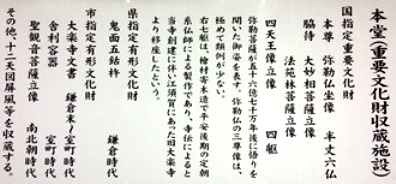 本堂(重要文化財収蔵施設)
国指定重要文化財
本尊 弥勒仏坐像 半丈六仏
脇待 大妙相菩薩立像
法苑林菩薩立像
四天王像立像 四躯
弥勒菩薩が五十六億七千万年後に悟りを
開いた御姿を表す。弥勒仏の三尊像は、
極めて類例が少ない。
右七躯は、桧材寄木造で平安後期の定朝
系仏師による製作であり、寺伝によると
当寺創建に伴い江須賀にあった旧大楽寺
より移座したという。
県指定有形文化財
鬼面五鈷杵 鎌倉時代
市指定有形文化財
大楽寺文書 鎌倉末~室町時代
舎利容器 室町時代
聖観音菩薩立像 南北朝時代
その他、十二天図屏風等を収蔵する。